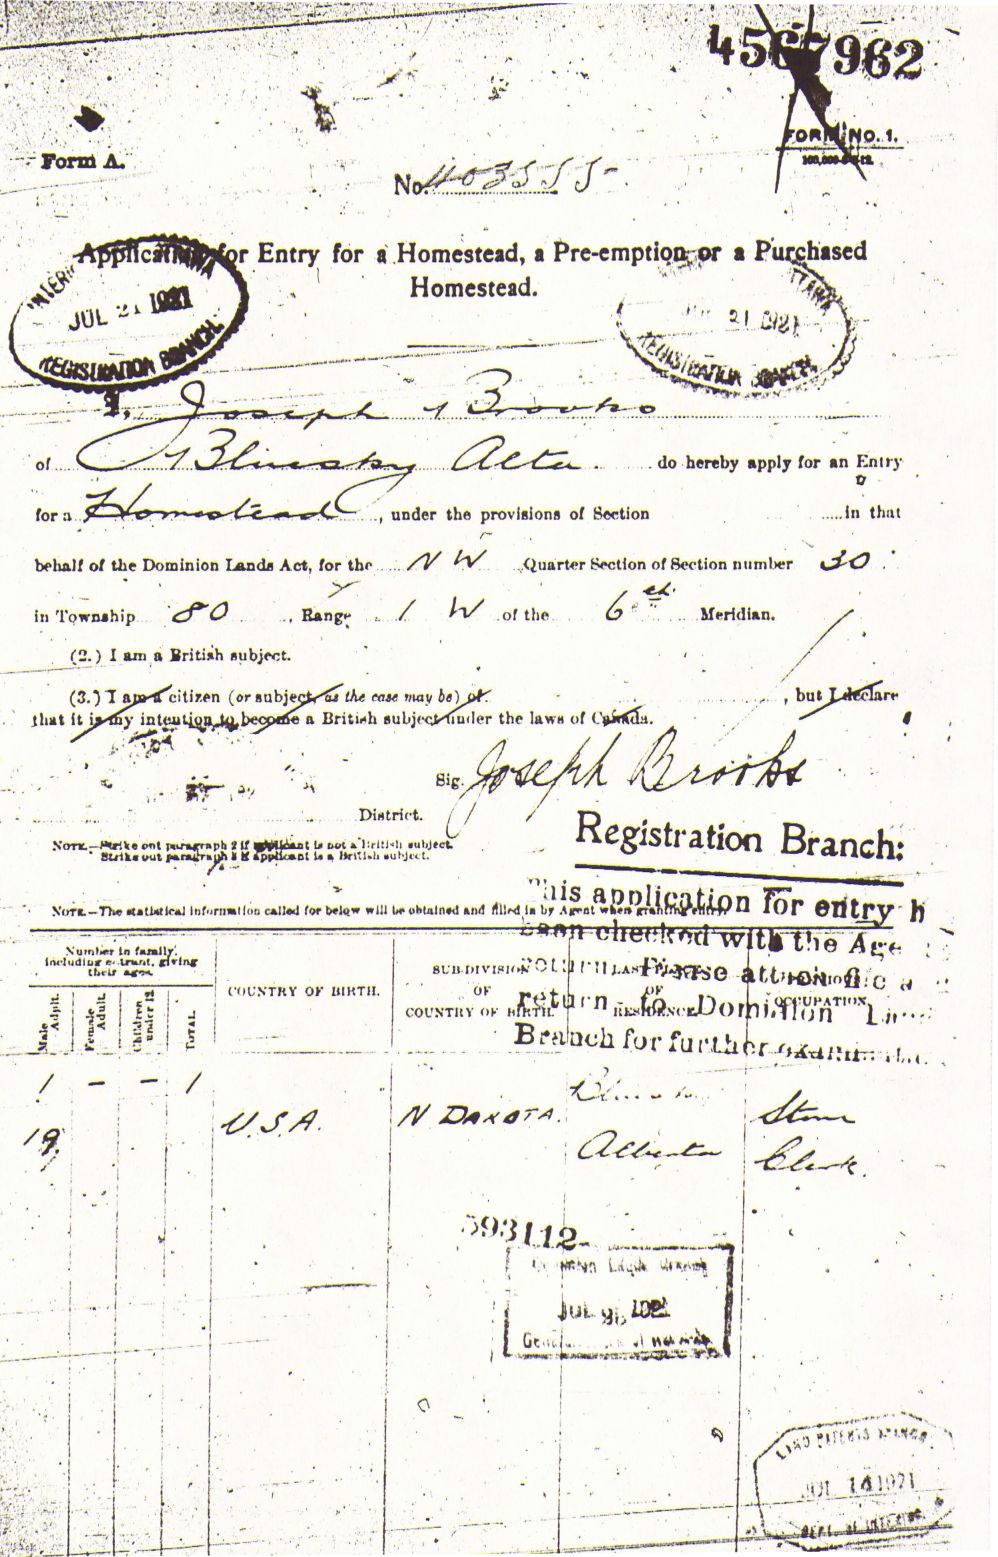 4567962
Form A.
FORM NO. 1.
No. 1103555
Application for Entry for a Homestead, a Pre-emption or a Purchased
Homestead.
INTERIOR OTTAWA
JUL 21 1921
REGISTRATION BRANCH.
OTTAWA
JUL 21 1921
REGISTRATION BRANCH
I, Joseph Brooks
of Bluesky Alta. do hereby apply for an Entry
for a Homestead, under the provisions of Section in that
behalf of the Dominion Lands Act, for the N W Quarter Section of Section number 30
in Township 80, Range 1 W of the 6th Meridian.
(2.) I am a British subject.
(3.) I am a citizen (or subject, as the case may be) of , but I declare
that it is my intention to become a British subject under the laws of Canada.
Sig. Joseph Brooks
District.
NOTE.—Strike out paragraph 2 if applicant is not a British subject.
Strike out paragraph 3 if applicant is a British subject.
Registration Branch:
This application for entry h
been checked with the Age
return. Please attach file a
return to Dominion Land
Branch for further examination
NOTE.—The statistical information called for below will be obtained and filled in by Agent when granting entry.
Number in family, including entrant, giving their ages.
Male Adult.
Female Adult.
Children under 12
TOTAL.
COUNTRY OF BIRTH.
SUB-DIVISION OF COUNTRY OF BIRTH.
LAST PLACE OF RESIDENCE
OCCUPATION
1 — — 1
19
U.S.A. N DAKOTA. Bluesky Store
Alberta Clerk.
593112
Dominion Lands Branch
JUL 1921
LAND PATENTS BRANCH
1921
DEPT. OF INTERIOR